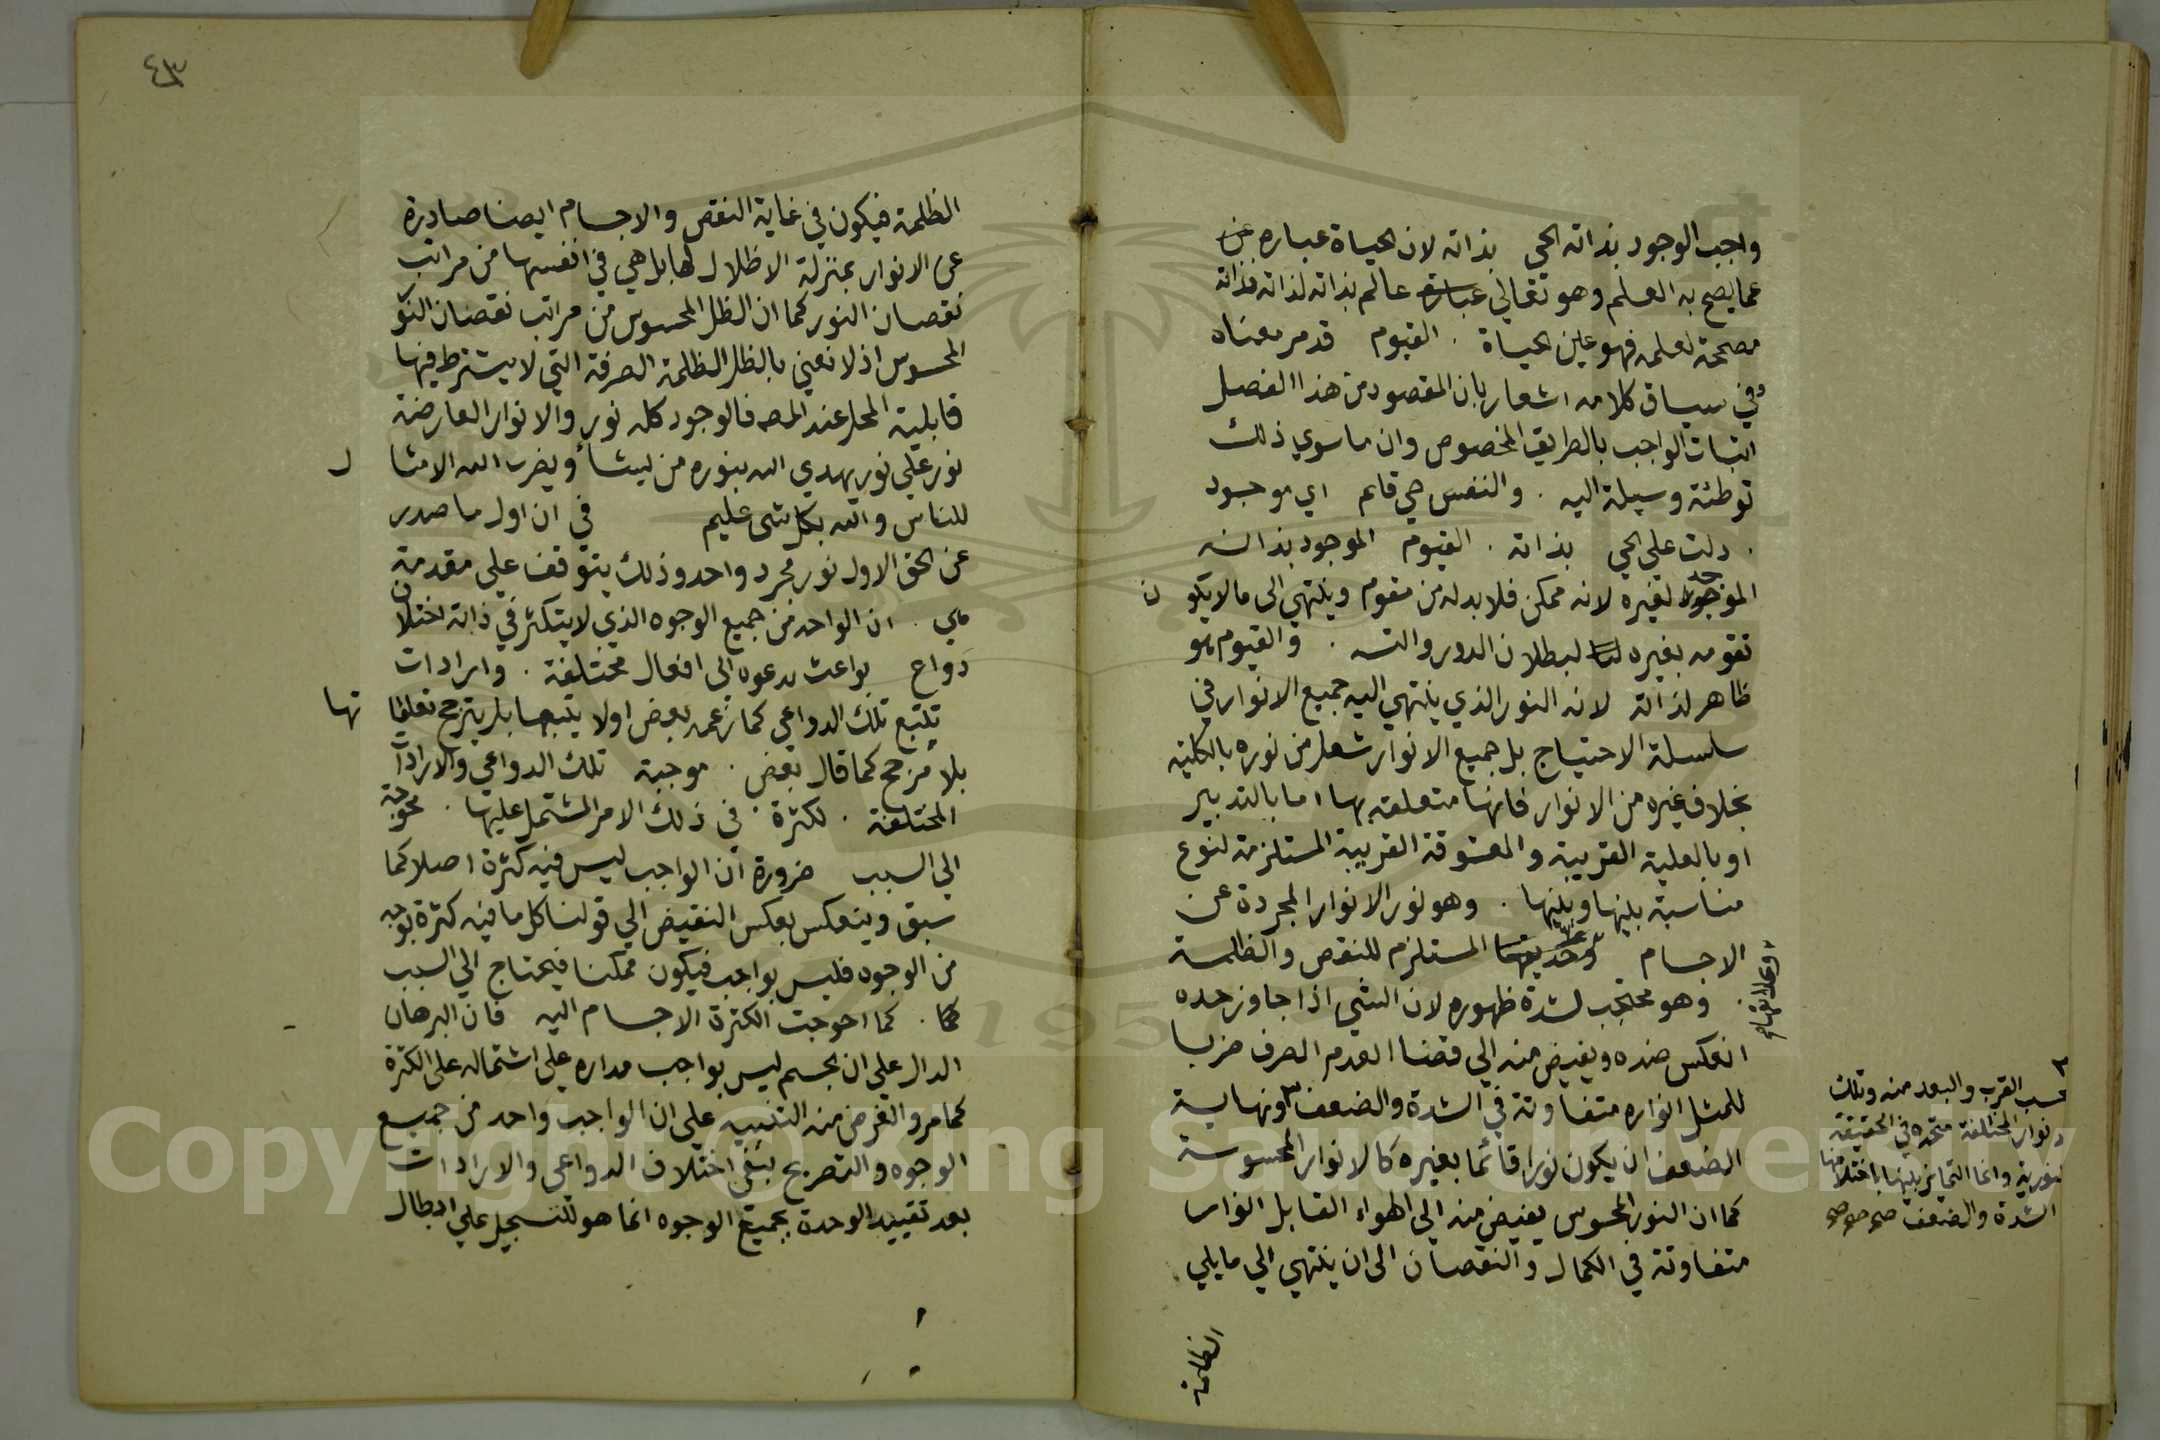 واجب الوجود بذاته الحي بذاته لان الحياة عباره عن
عما يصح به العلم وهو تعالي عبارة عالم بذاته لذاته فذاته
مصححة لعلمه فهو عين الحياة . القيوم قد مر معناه
وفي سياق كلامه اشعار بان المقصود من هذا الفصل
اثبات الواجب بالطريق المخصوص وان ما سوي ذلك
توطئة وسيلة اليه . والنفس حي قائم اي موجود
. دلت علي الحي بذاته . القيوم الموجود بذاته
الموجد لغيره لانه ممكن فلا بد له من مقوم وينتهي الى ما لا يكون
تقومه بغيره لبطلان الدور والتسـ . والقيوم هو
ظاهر لذاته لانه النور الذي ينتهي اليه جميع الانوار في
سلسلة الاحتياج بل جميع الانوار شعل من نوره بالكلية
بخلاف غيره من الانوار فانها متعلقه بها اما بالتدبير
او بالعلية القريبة والمعشوقة القريبة المستلزمة لنوع
مناسبة بينها وبينها . وهو نور الانوار المجردة عن
الاجسام وعلائقها المستلزم للنقص والظلمة
. وهو محتجب لشدة ظهوره لان الشي اذا جاوز حده
انعكس ضده ويفيض منه الي فضا العدم الصرف ضربا
للمثل انواره متفاوتة في الشدة والضعف ٣ ونهاية
الضعف ان يكون نورا قائما بغيره كالانوار المحسوسة
كما ان النور المحسوس يفيض منه الى الهواء القابل انوار
متفاوتة في الكمال والنقصان الى ان ينتهي الي ما يلي
الظلمة
وعلائقها
٣
بحسب القرب والبعد منه وتلك
الانوار المختلفة متحدة في الحقيقة
النورية وانما التمايز بينها باختلافها
الشدة والضعف صح صح صح
٤٣
الظلمة فيكون في غاية النقص والاجسام ايضا صادرة
عن الانوار بمنزلة الاظلال لها بل هي في انفسها من مراتب
نقصان النور كما ان الظل المحسوس من مراتب نقصان النور
المحسوس اذ لا نعني بالظل الظلمة الصرفة التي لا يشترط فيها
قابلية المحل عند المصـ فالوجود كله نور والانوار العارضة
نور علي نور يهدي الله بنوره من يشأ ويضرب الله الامثال
للناس والله بكل شي عليم في ان اول ما صدر
عن الحق الاول نور مجرد واحد وذلك يتوقف علي مقدمة
هي . ان الواحد من جميع الوجوه الذي لا يتكثر في ذاته اختلاف
دواع بواعث يدعوه الى افعال مختلفة . وارادات
تتبع تلك الدواعي كما زعمه بعض اولا يتبعها بل يترجح تعلقاتها
بلا مرجح كما قال بعض . موجبة تلك الدواعي والارادات
المختلفة . لكثرة . في ذلك الامر المشتمل عليها . محوجة
الي السبب ضرورة ان الواجب ليس فيه كثرة اصلا كما
سبق وينعكس بعكس النقيض الي قولنا كل ما فيه كثرة بوجه
من الوجوه فليس بواجب فيكون ممكنا فيحتاج الي السبب
. كما احوجت الكثرة الاجسام اليه فان البرهان
الدال علي ان الجسم ليس بواجب مداره علي اشتماله على الكثرة
كما مر والغرض منه التنبيه علي ان الواجب واحد من جميع
الوجوه والتصريح بنفي اختلاف الدواعي والارادات
بعد تقييد الوحدة بجميع الوجوه انما هو للتسجيل علي ابطال
Copyright © King Saud University
195